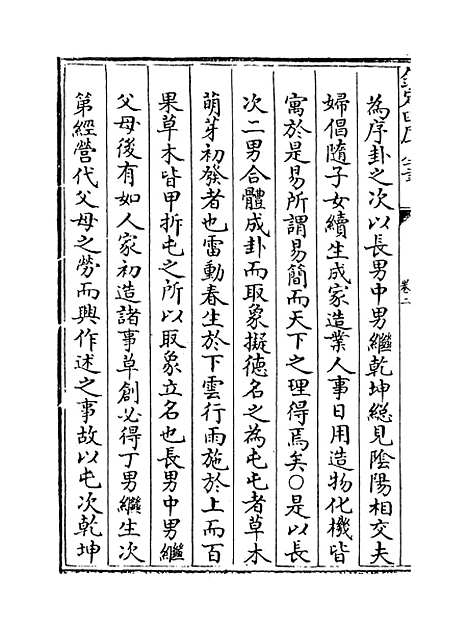 欽定四庫全書
卷二
為序卦之次以長男中男繼乾坤總見陰陽相交夫
婦倡隨子女續生成家造業人事日用造物化機皆
寓於是易所謂易簡而天下之理得焉矣○是以長
次二男合體成卦而取象擬德名之為屯屯者草木
萌芽初發者也雷動春生於下雲行雨施於上而百
果草木皆甲折屯之所以取象立名也長男中男繼
父母後有如人家初造諸事草創必得丁男繼生次
第經營代父母之勞而興作述之事故以屯次乾坤